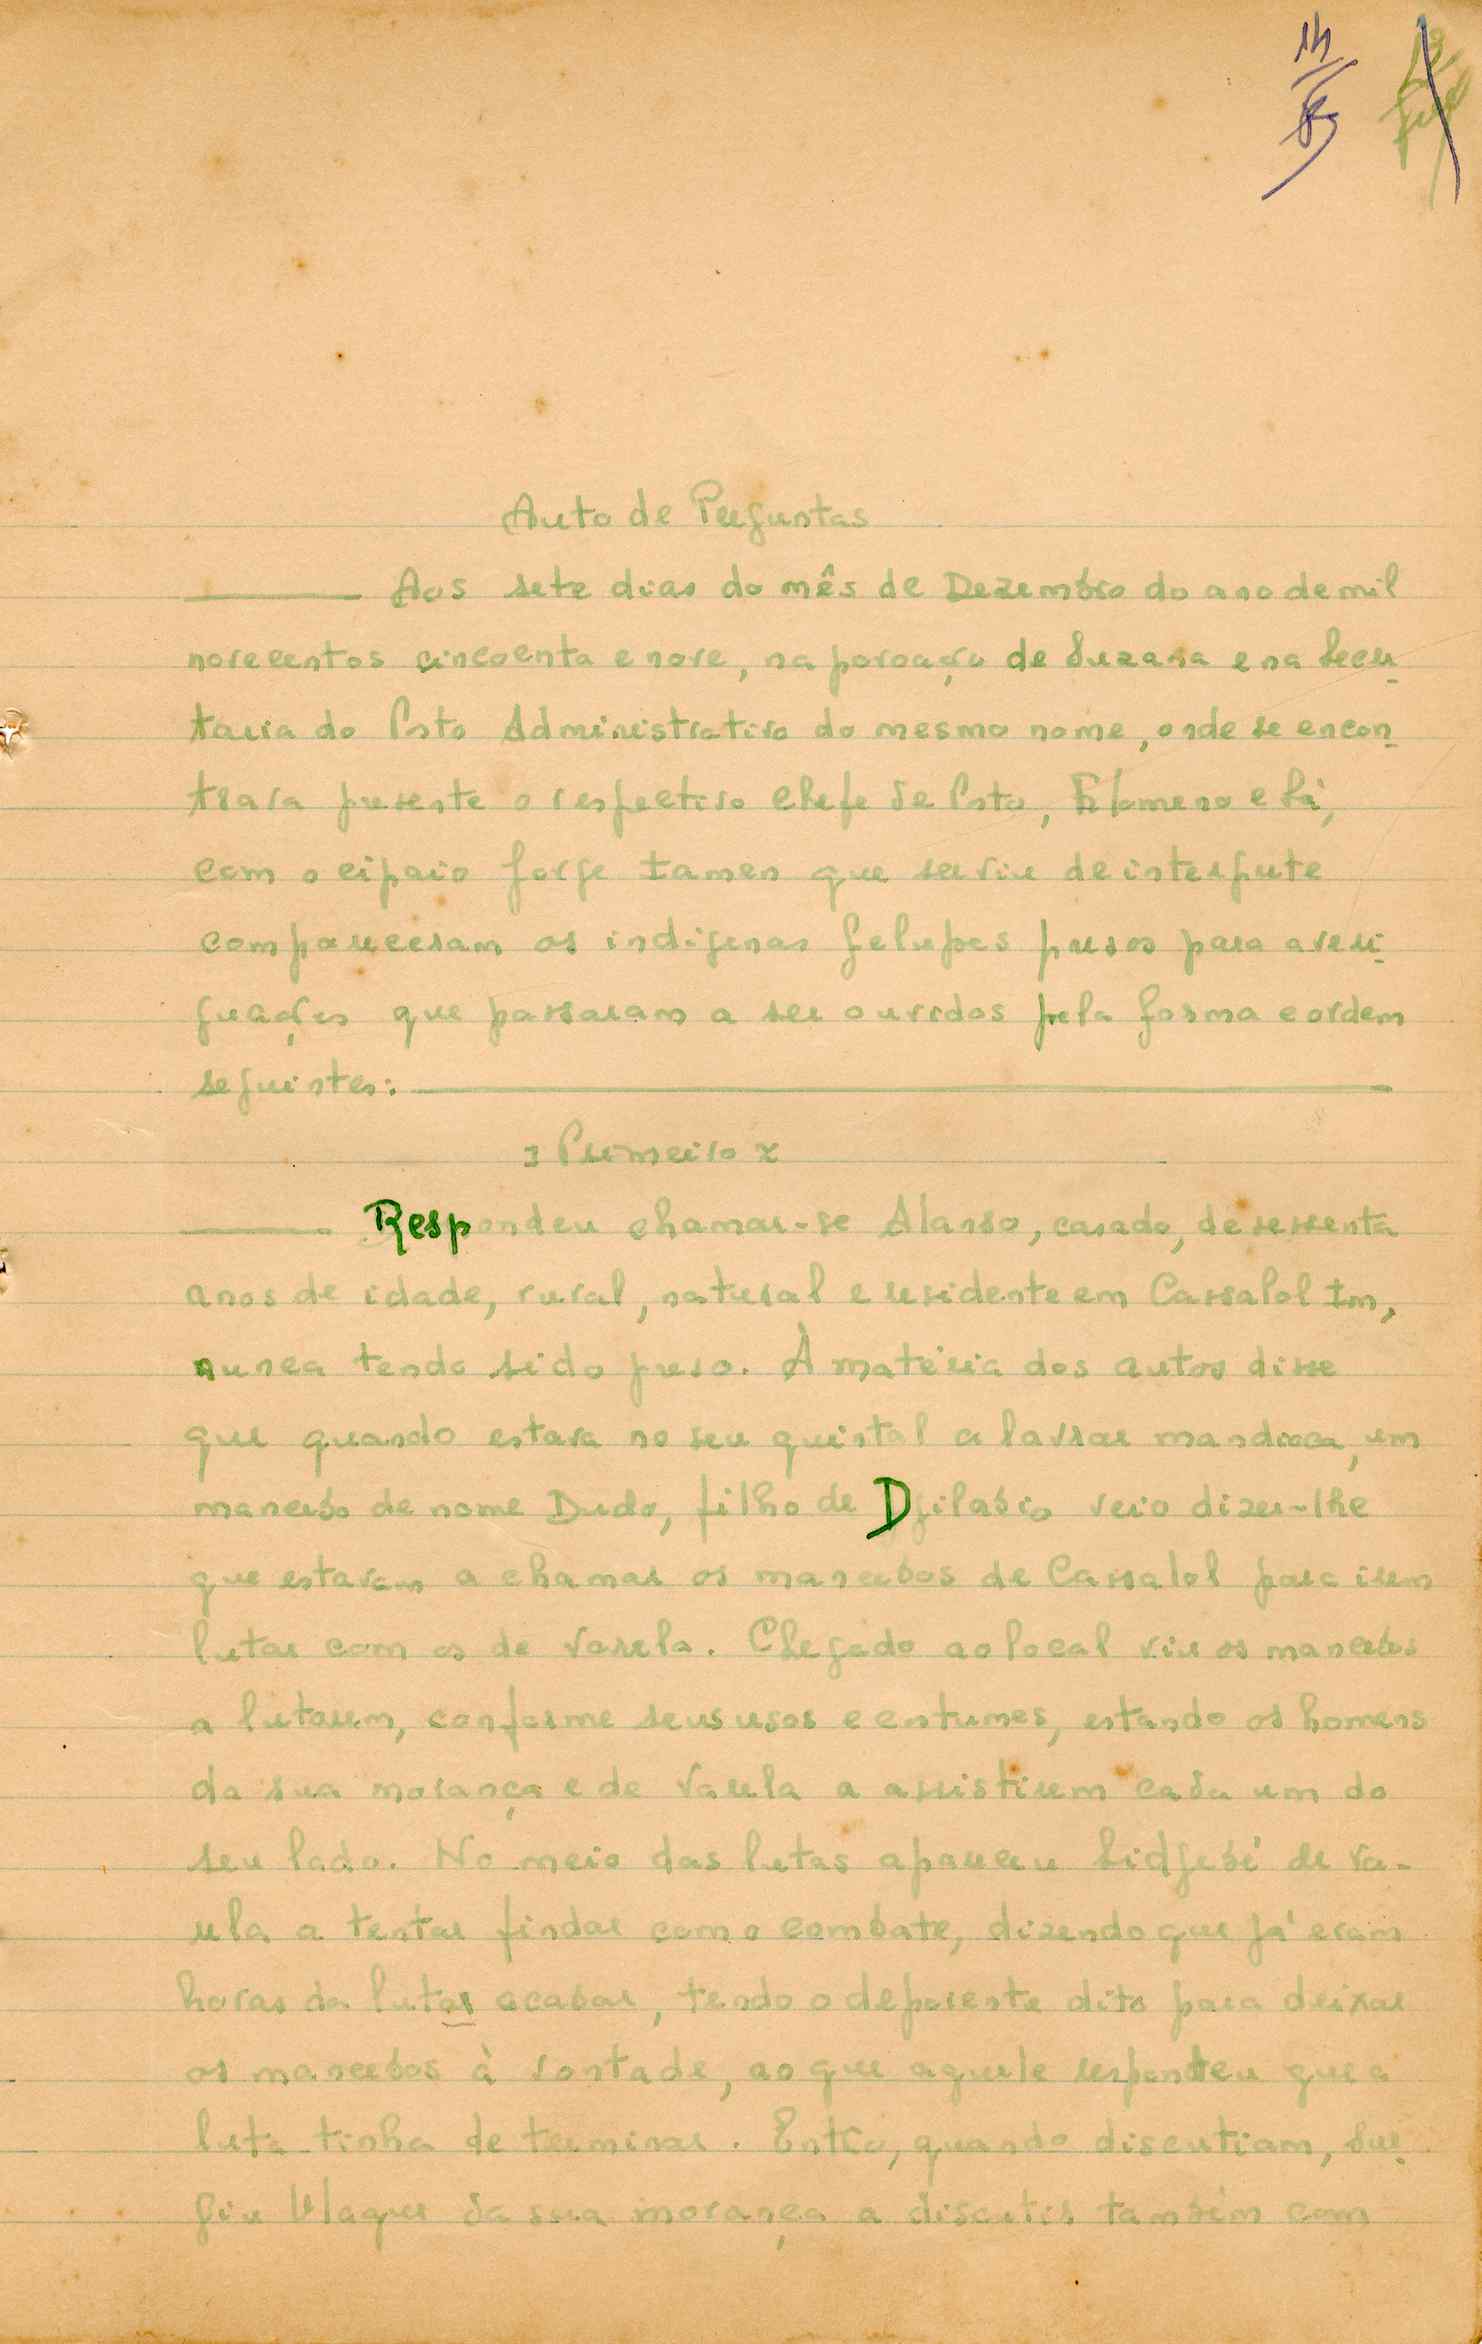 14
Auto de Perguntas
Aos sete dias do mês de Dezembro do ano de mil
novecentos cincoenta e nove, na povoação de Suzana e na Secre-
taria do Posto Administrativo do mesmo nome, onde se encon-
trava presente o respectivo chefe de Posto, Filomeno e Sá,
com o cipaio Jorge tamen que serviu de interprete
compareceram os indigenas felupes presos para averi-
guações que passaram a ser ouvidos pela forma e ordem
seguintes:
Primeiro
Respondeu chamar-se Alanso, casado, de sessenta
anos de idade, rural, natural e residente em Cassalol Im,
nunca tendo sido preso. À matéria dos autos disse
que quando estava no seu quintal a lavrar mandioca, um
mancebo de nome Dudo, filho de Djilabio veio dizer-lhe
que estavam a chamar os mancebos de Cassalol para irem
lutar com os de Varela. Chegado ao local viu os mancebos
a lutarem, conforme seus usos e custumes, estando os homens
da sua morança e de Varela a assistirem cada um do
seu lado. No meio das lutas apareceu Sidjebé de Va-
rela a tentar findar com o combate, dizendo que já eram
horas da lutas acabar, tendo o depoente dito para deixar
os mancebos à vontade, ao que aquele respondeu que a
luta tinha de terminar. Então, quando discutiam, sur-
giu da sua morança a discutir também com